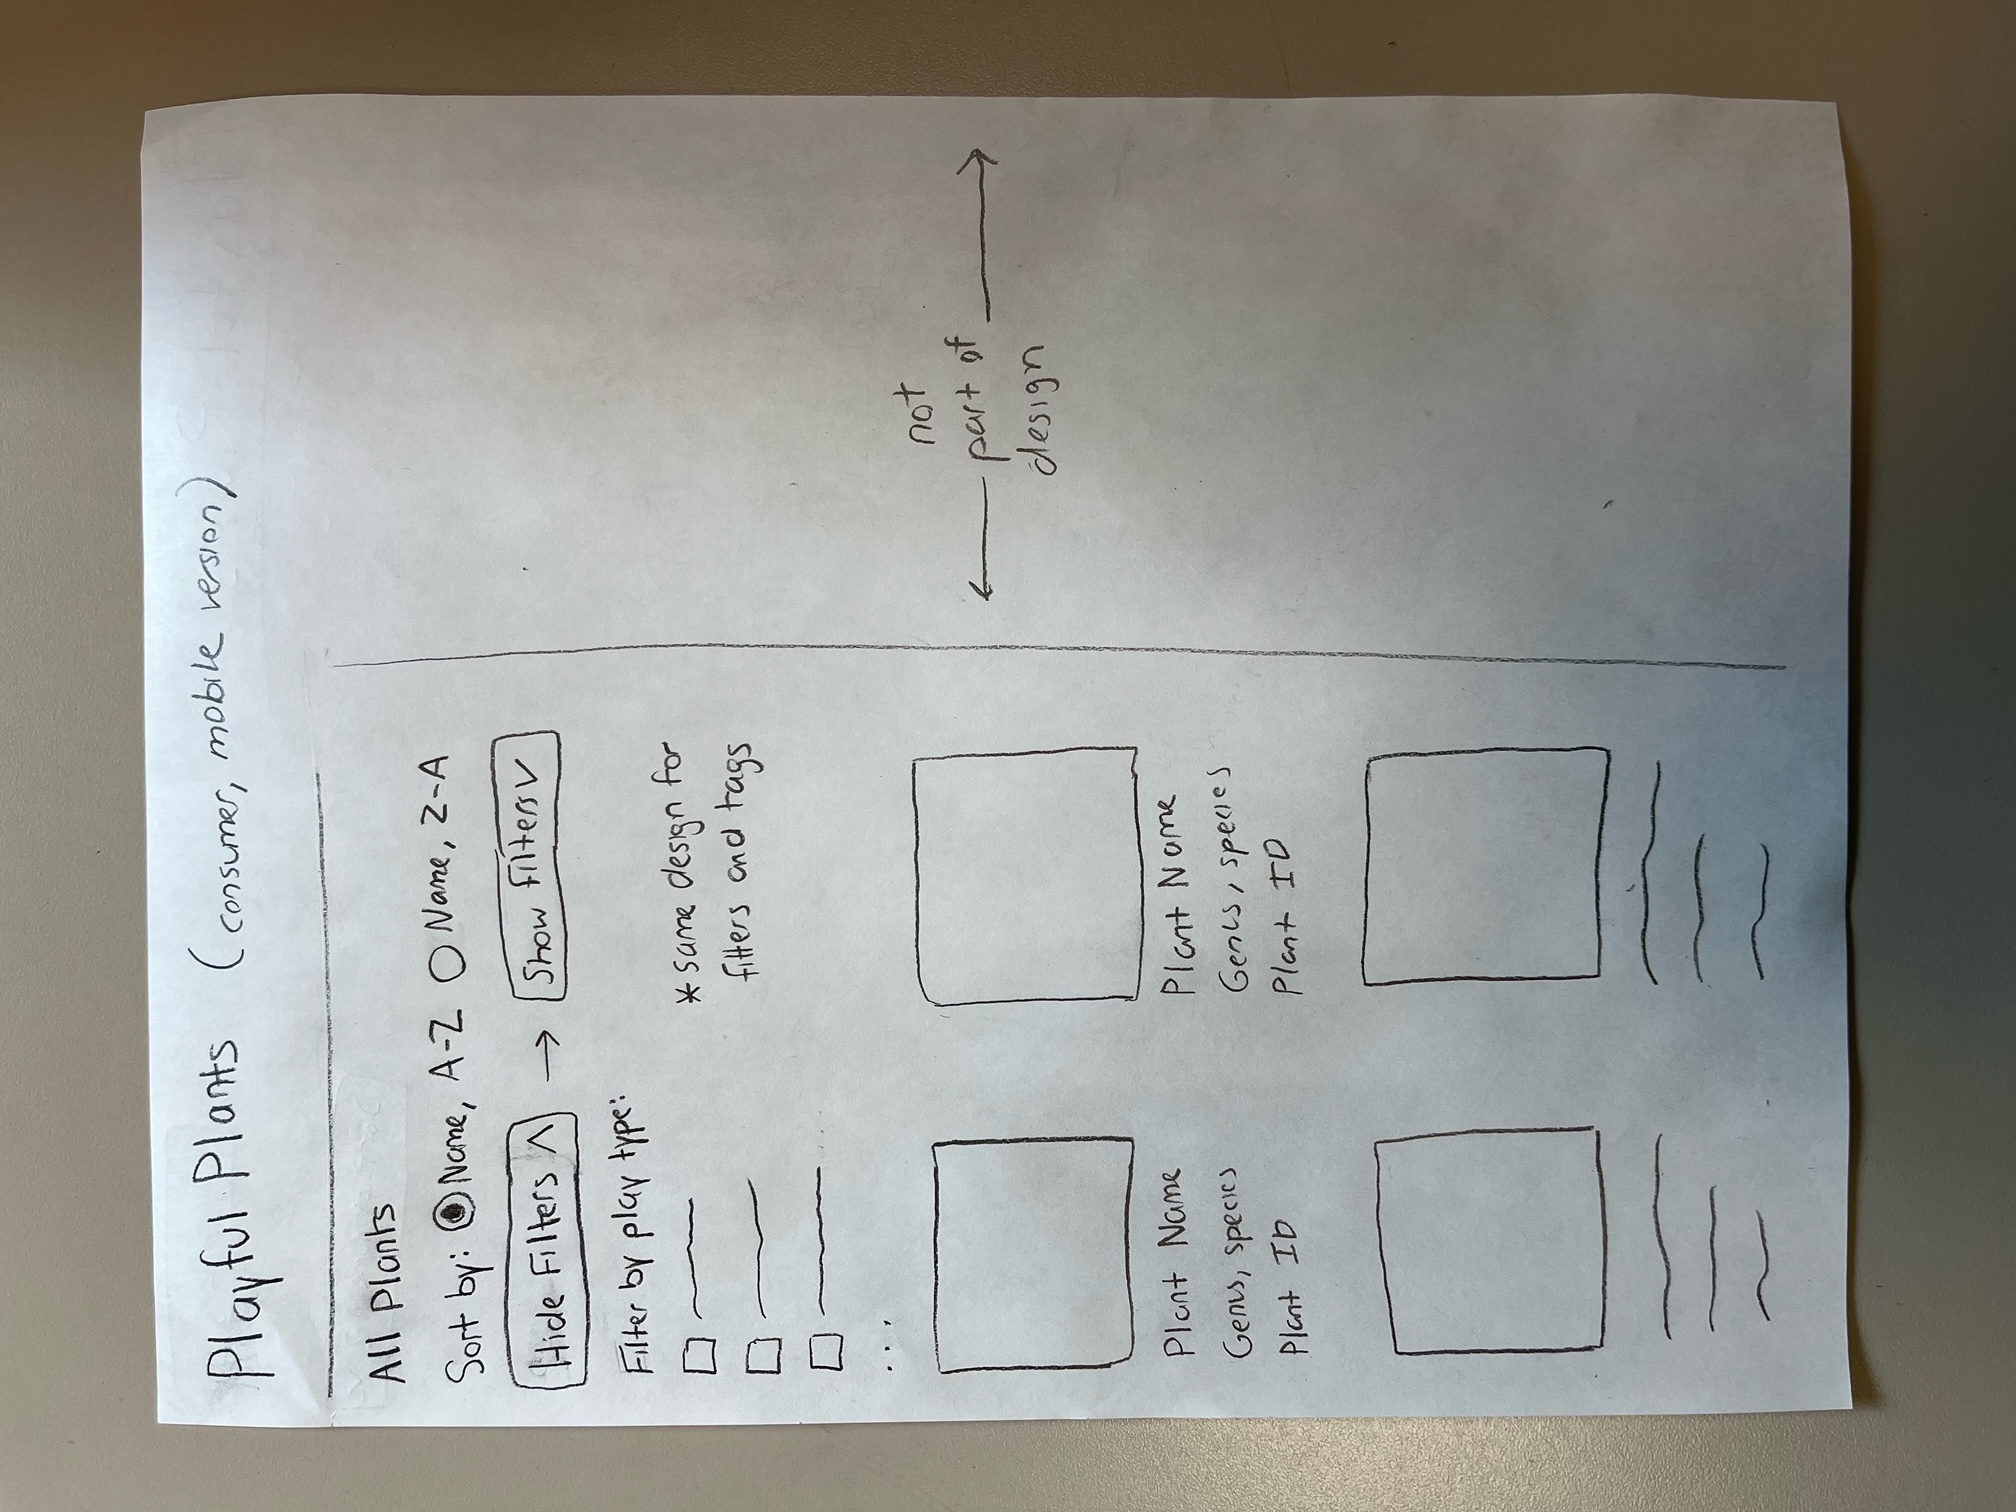 Playful Plants (consumer, mobile version)
All Plants
Sort by: Name, A-Z Name, Z-A
Hide Filters ∧ → Show Filters ∨
Filter by play type:
* same design for
filters and tags
...
not
part of
design
Plant Name
Genus, species
Plant ID
Plant Name
Genus, species
Plant ID